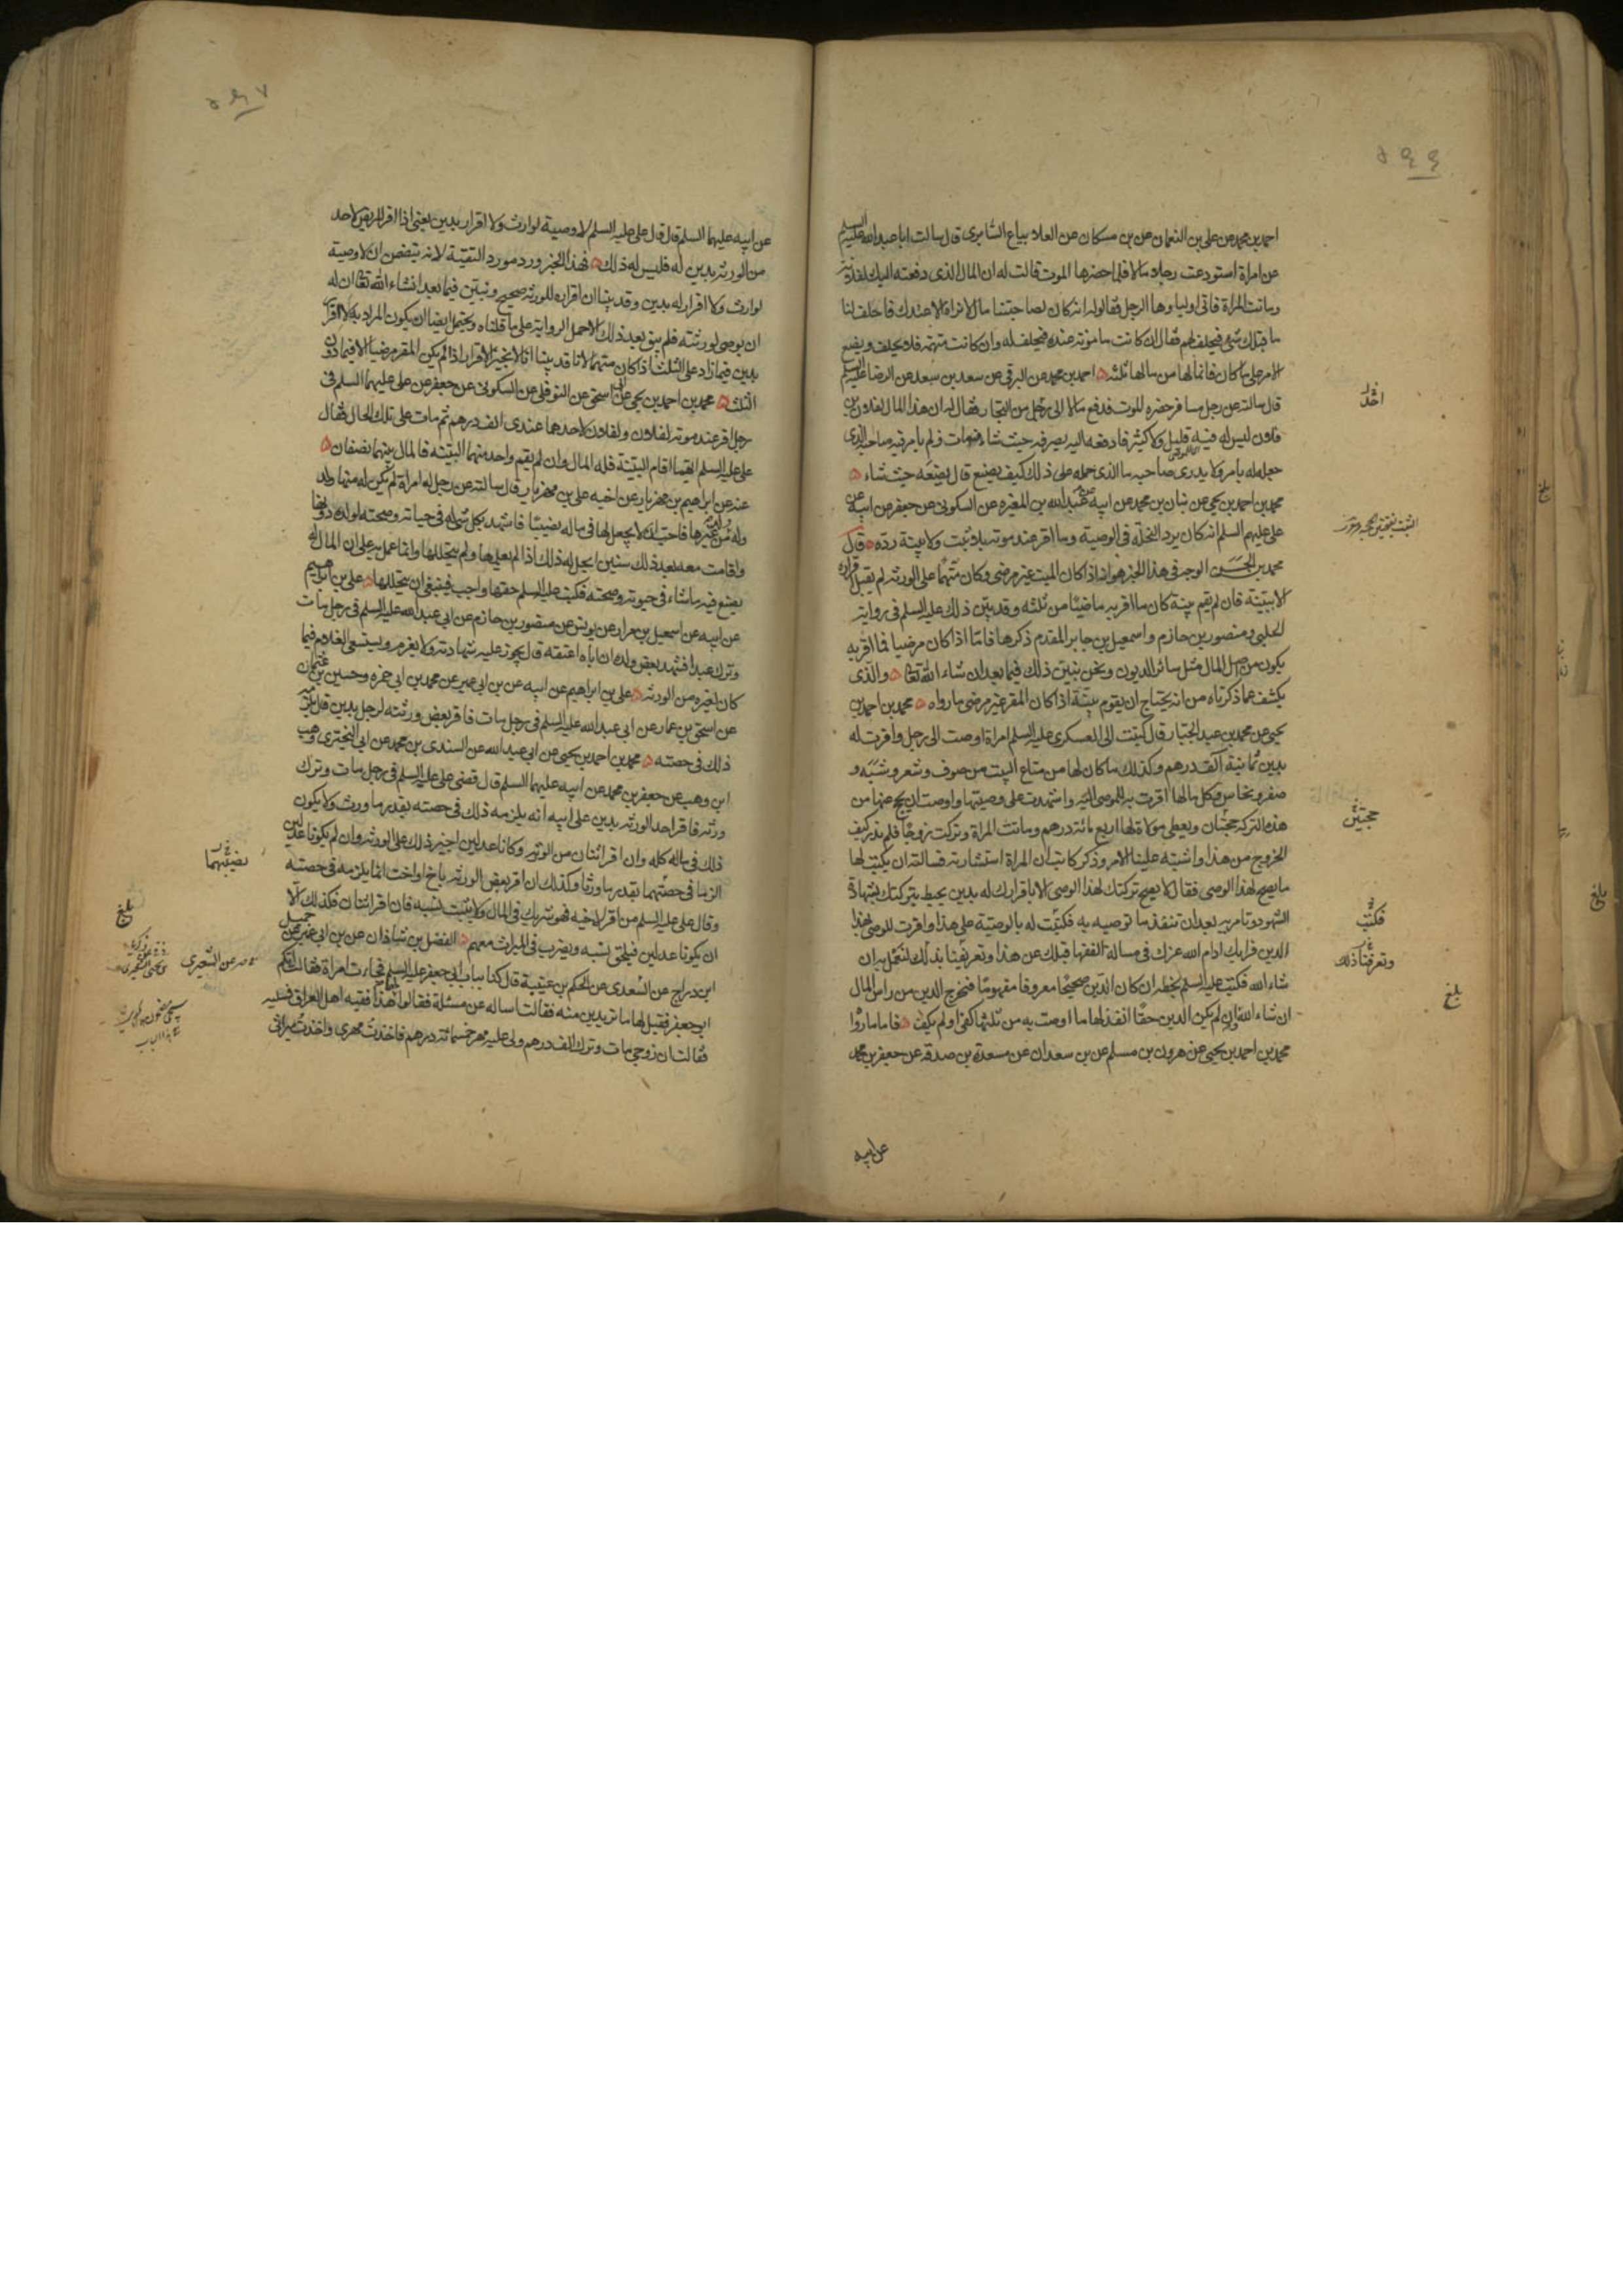 احمد بن محمد عن علي بن النعمان عن بن مسكان عن العلا بياع السابري قال سالت ابا عبد الله عليه السلم
عن امراة استودعت رجلا مالا فلما حضرها الموت قالت له ان المال الذي دفعته اليك لفلانة
وماتت المراة فاتي اولياوها الرجل فقالوا له انه كان لصاحبتنا مال لا نراه الا عندك فاحلف لنا
ما قبلك شي فيحلف لهم فقال ان كانت مامونة عنده فيحلف له وان كانت متهمة فلا يحلف ويضع
الامر علي ما كان فانما لها من مالها ثلثه احمد بن محمد عن البرقي عن سعد بن سعد عن الرضا عليه السلم
قال سالته عن رجل مسافر حضره الموت فدفع مالا الي رجل من التجار فقال له ان هذا المال لفلان بن
فلان ليس له فيه قليل ولا كثير فادفعه اليه يصرفه حيث شاء فمات ولم يامر فيه صاحبه الذي
جعله له بامر ولا يدري صاحبه ما الذي حمله علي ذلك كيف يصنع قال يضعه حيث شاء
محمد بن احمد بن يحيي عن بنان بن محمد عن ابيه عن عبد الله بن المغيره عن السكوني عن جعفر عن ابيه عن
علي عليهم السلم انه كان يرد النحلة في الوصية وما اقر عند موته بلا ثبت ولا بينة رده قال
محمد بن الحسن الوجه في هذا الخبر هو انه اذا كان الميت غير مرضي وكان متهما علي الورثه لم يقبل اقراره
الا ببينة فان لم يقم بينة كان ما اقر به ماضيا من ثلثه وقد بين ذلك عليه السلم في رواية
الحلبي ومنصور بن حازم واسمعيل بن جابر المقدم ذكرها فاما اذا كان مرضيا فما اقر به
يكون من اصل المال مثل سائر الديون ونحن نبين ذلك فيما بعد ان شاء الله تعالي والذي
يكشف عما ذكرناه من انه يحتاج ان يقوم بينة اذا كان المقر غير مرضي ما رواه محمد بن احمد بن
يحيي عن محمد بن عبد الجبار قال كتبت الي العسكري عليه السلم امراة اوصت الي رجل واقرت له
بدين ثمانية آلف درهم وكذلك ما كان لها من متاع البيت من صوف وشعر وشبه و
صفر ونحاس وكل مالها اقرت به للموصي اليه واشهدت علي وصيتها واوصت ان يحج عنها من
هذه التركة حجتان ويعطي مولاة لها اربع مائة درهم وماتت المراة وتركت زوجا فلم ندر كيف
الخروج من هذا واشتبه علينا الامر وذكر كاتب ان المراة استشارته فسالته ان يكتب لها
ما يصح لهذا الوصي فقال لا يصح تركتك لهذا الوصي الا باقرارك له بدين يحيط بتركتك بشهادة
الشهود وتامريه بعد ان تنفذ ما توصيه به فكتبت له بالوصية علي هذا واقرت للوصي بهذا
الدين فرايك ادام الله عزك في مسالة الفقها قبلك عن هذا وتعريفنا بذلك لنعمل به ان
شاء الله فكتب عليه السلم بخطه ان كان الدين صحيحا معروفا مفهوما فيخرج الدين من راس المال
ان شاء الله وان لم يكن الدين حقا انفذ لها ما اوصت به من ثلثها كفي او لم يكف فاما ما رواه
محمد بن احمد بن يحيي عن هرون بن مسلم عن بن سعدان عن مسعدة بن صدقة عن جعفر بن محمد
عن ابيه
حجتين
فكتب
بلغ
عن ابيه عليهما السلم قال قال علي عليه السلم لا وصية لوارث ولا اقرار بدين يعني اذا اقر المريض لاحد
من الورثه بدين له فليس له ذلك فهذا الخبر ورد مورد التقية لانه يتضمن ان لا وصية
لوارث ولا اقرار له بدين وقد بينا ان اقراره للورثه صحيح ونبين فيما بعد انشاء الله تعالي ان له
ان يوصي لورثته فلم يبق بعد ذلك الا حمل الرواية علي ما قلناه ويحتمل ايضا ان يكون المراد به لا اقرار
بدين فيما زاد علي الثلث اذا كان متهما لانا قد بينا انا لا نجيز الاقرار اذا لم يكن المقر مرضيا الا فيما دون
الثلث محمد بن احمد بن يحيي عن ابي اسحق عن النوفلي عن السكوني عن جعفر عن علي عليهما السلم في
رجل اقر عند موته لفلان ولفلان لاحدهما عندي الف درهم ثم مات علي تلك الحال فقال
علي عليه السلم ايهما اقام البينة فله المال وان لم يقم واحد منهما البينه فالمال بينهما نصفان
عنه عن ابراهيم بن مهزيار عن اخيه علي بن مهزيار قال سالته عن رجل له امراة لم يكن له منها ولد
وله ولد من غيرها فاحب ان لا يجعل لها في ماله نصيبا فاشهد بكل شي له في حياته وصحته لولده دونها
واقامت معه بعد ذلك سنين ايحل له ذلك اذا لم يعلمها ولم يتحللها وانما عمل به علي ان المال له
يصنع فيه ما شاء في حيوته وصحته فكتب عليه السلم حقها واجب فينبغي ان يتحللها علي بن ابراهيم
عن ابيه عن اسمعيل بن مرار عن يونس عن منصور بن حازم عن ابي عبد الله عليه السلم في رجل مات
وترك عبدا فشهد بعض ولده ان اباه اعتقه قال يجوز عليه شهادته ولا يغرم ويستسعي الغلام فيما
كان لغيره من الورثه علي بن ابراهيم عن ابيه عن بن ابي عمير عن محمد بن ابي حمزه وحسين بن عثمان
عن اسحق بن عمار عن ابي عبد الله عليه السلم في رجل مات فاقر بعض ورثته لرجل بدين قال يلزمه
ذلك في حصته محمد بن احمد بن يحيي عن ابي عبد الله عن السندي بن محمد عن ابي البختري وهب
ابن وهب عن جعفر بن محمد عن ابيه عليهما السلم قال قضي علي عليه السلم في رجل مات وترك
ورثه فاقر احد الورثه بدين علي ابيه انه يلزمه ذلك في حصته بقدر ما ورث ولا يكون
ذلك في ماله كله وان اقر اثنان من الورثه وكانا عدلين اجيز ذلك علي الورثه وان لم يكونا عدلين
الزما في حصتهما بقدر ما ورثا وكذلك ان اقر بعض الورثه باخ او اخت انما يلزمه في حصته
وقال علي عليه السلم من اقر لاخيه فهو شريك في المال ولا يثبت نسبه فان اقر اثنان فكذلك الا
ان يكونا عدلين فيلحق نسبه ويضرب في الميراث معهم الفضل بن شاذان عن بن ابي عمير عن جميل
ابن دراج عن السعدي عن الحكم بن عتيبة قال كنا بباب ابي جعفر عليه السلم فجاءت امراة فقالت ايكم
ابو جعفر فقيل لها ما تريدين منه فقالت اساله عن مسئلة فقالوا لها هذا فقيه اهل العراق فسليه
فقالت ان زوجي مات وترك الف درهم ولي عليه مهر خمسمائة درهم فاخذت مهري واخذت ميراثي
نصيبهما
بلغ